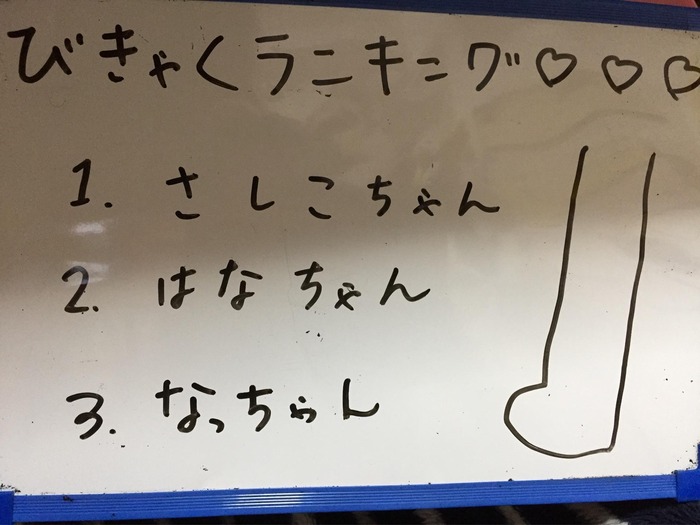 びきゃくラニキニグ♡♡♡
1. さしこちゃん
2. はなちゃん
3. なっちゃん